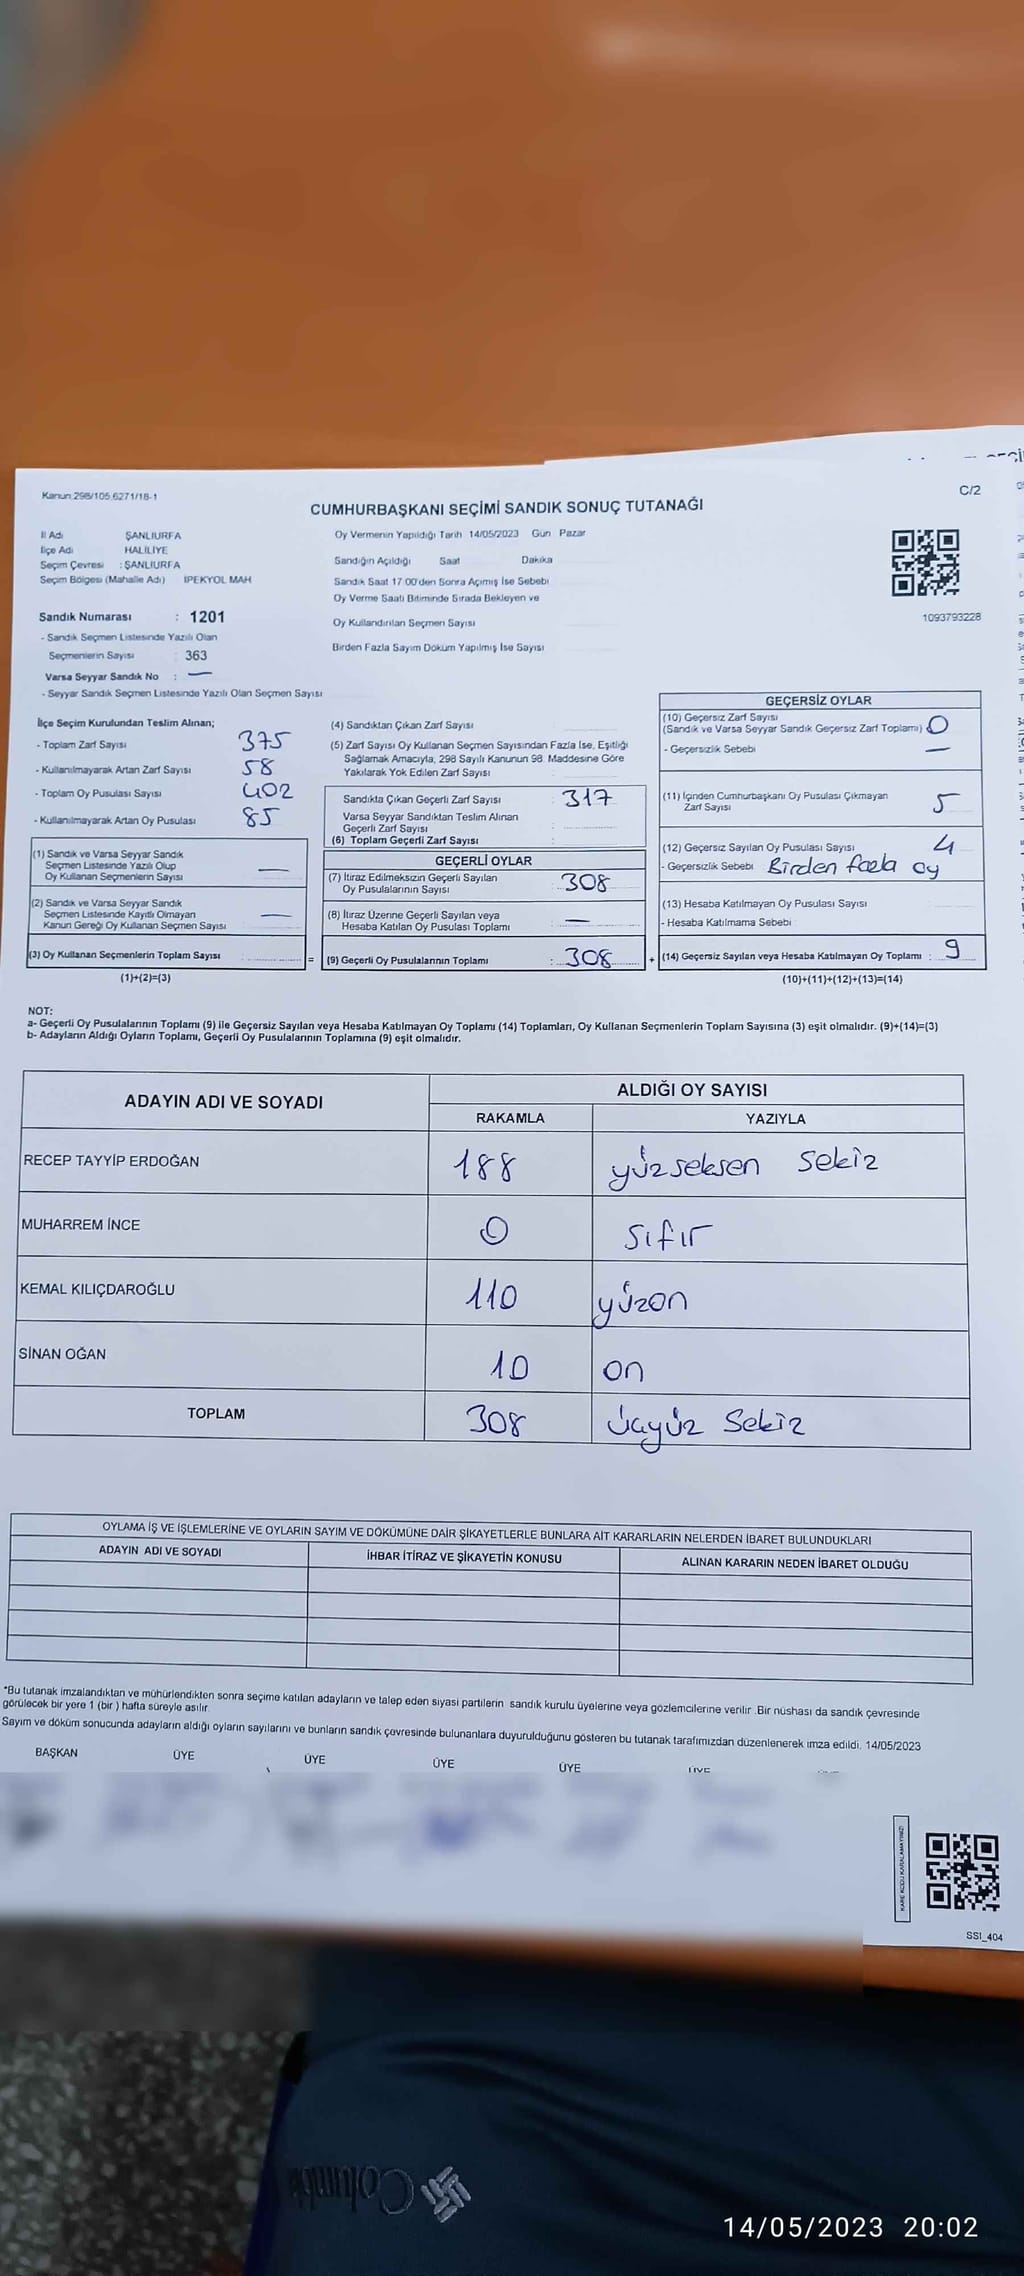 Kanun 298/105.6271/18-1
C/2
CUMHURBAŞKANI SEÇİMİ SANDIK SONUÇ TUTANAĞI
İl Adı ŞANLIURFA
İlçe Adı HALİLİYE
Seçim Çevresi : ŞANLIURFA
Seçim Bölgesi (Mahalle Adı) IPEKYOL MAH
Oy Vermenin Yapıldığı Tarih 14/05/2023 Gün Pazar
Sandığın Açıldığı Saat Dakika
Sandık Saat 17:00'den Sonra Açımış İse Sebebi
Oy Verme Saati Bitiminde Sırada Bekleyen ve
Oy Kullandırılan Seçmen Sayısı
Birden Fazla Sayım Döküm Yapılmış İse Sayısı
1093793228
Sandık Numarası : 1201
- Sandık Seçmen Listesinde Yazılı Olan
Seçmenlerin Sayısı : 363
Varsa Seyyar Sandık No : —
- Seyyar Sandık Seçmen Listesinde Yazılı Olan Seçmen Sayısı
İlçe Seçim Kurulundan Teslim Alınan;
- Toplam Zarf Sayısı 375
- Kullanılmayarak Artan Zarf Sayısı 58
- Toplam Oy Pusulası Sayısı 402
- Kullanılmayarak Artan Oy Pusulası 85
(1) Sandık ve Varsa Seyyar Sandık
Seçmen Listesinde Yazılı Olup
Oy Kullanan Seçmenlerin Sayısı —
(2) Sandık ve Varsa Seyyar Sandık
Seçmen Listesinde Kayıtlı Olmayan
Kanun Gereği Oy Kullanan Seçmen Sayısı —
(3) Oy Kullanan Seçmenlerin Toplam Sayısı =
(1)+(2)=(3)
(4) Sandıktan Çıkan Zarf Sayısı
(5) Zarf Sayısı Oy Kullanan Seçmen Sayısından Fazla İse, Eşitliği
Sağlamak Amacıyla, 298 Sayılı Kanunun 98. Maddesine Göre
Yakılarak Yok Edilen Zarf Sayısı
Sandıkta Çıkan Geçerli Zarf Sayısı : 317
Varsa Seyyar Sandıktan Teslim Alınan
Geçerli Zarf Sayısı :
(6) Toplam Geçerli Zarf Sayısı :
GEÇERLİ OYLAR
(7) İtiraz Edilmeksizin Geçerli Sayılan
Oy Pusulalarının Sayısı : 308
(8) İtiraz Üzerine Geçerli Sayılan veya
Hesaba Katılan Oy Pusulası Toplamı : —
(9) Geçerli Oy Pusulalarının Toplamı : 308 +
GEÇERSİZ OYLAR
(10) Geçersiz Zarf Sayısı
(Sandık ve Varsa Seyyar Sandık Geçersiz Zarf Toplamı) 0
- Geçersizlik Sebebi —
(11) İçinden Cumhurbaşkanı Oy Pusulası Çıkmayan
Zarf Sayısı 5
(12) Geçersiz Sayılan Oy Pusulası Sayısı 4
- Geçersizlik Sebebi Birden fazla oy
(13) Hesaba Katılmayan Oy Pusulası Sayısı
- Hesaba Katılmama Sebebi
(14) Geçersiz Sayılan veya Hesaba Katılmayan Oy Toplamı : 9
(10)+(11)+(12)+(13)=(14)
NOT:
a- Geçerli Oy Pusulalarının Toplamı (9) ile Geçersiz Sayılan veya Hesaba Katılmayan Oy Toplamı (14) Toplamları, Oy Kullanan Seçmenlerin Toplam Sayısına (3) eşit olmalıdır. (9)+(14)=(3)
b- Adayların Aldığı Oyların Toplamı, Geçerli Oy Pusulalarının Toplamına (9) eşit olmalıdır.
ADAYIN ADI VE SOYADI ALDIĞI OY SAYISI
RAKAMLA YAZIYLA
RECEP TAYYİP ERDOĞAN 188 yüzseksen sekiz
MUHARREM İNCE 0 sıfır
KEMAL KILIÇDAROĞLU 110 yüzon
SİNAN OĞAN 10 on
TOPLAM 308 üçyüz Sekiz
OYLAMA İŞ VE İŞLEMLERİNE VE OYLARIN SAYIM VE DÖKÜMÜNE DAİR ŞİKAYETLERLE BUNLARA AİT KARARLARIN NELERDEN İBARET BULUNDUKLARI
ADAYIN ADI VE SOYADI İHBAR İTİRAZ VE ŞİKAYETİN KONUSU ALINAN KARARIN NEDEN İBARET OLDUĞU
*Bu tutanak imzalandıktan ve mühürlendikten sonra seçime katılan adayların ve talep eden siyasi partilerin sandık kurulu üyelerine veya gözlemcilerine verilir .Bir nüshası da sandık çevresinde
görülecek bir yere 1 (bir ) hafta süreyle asılır.
Sayım ve döküm sonucunda adayların aldığı oyların sayılarını ve bunların sandık çevresinde bulunanlara duyurulduğunu gösteren bu tutanak tarafımızdan düzenlenerek imza edildi. 14/05/2023
BAŞKAN ÜYE ÜYE ÜYE ÜYE ÜYE
KARE KODU KARALAMAYINIZ!
SSI_404
Columbia
14/05/2023 20:02